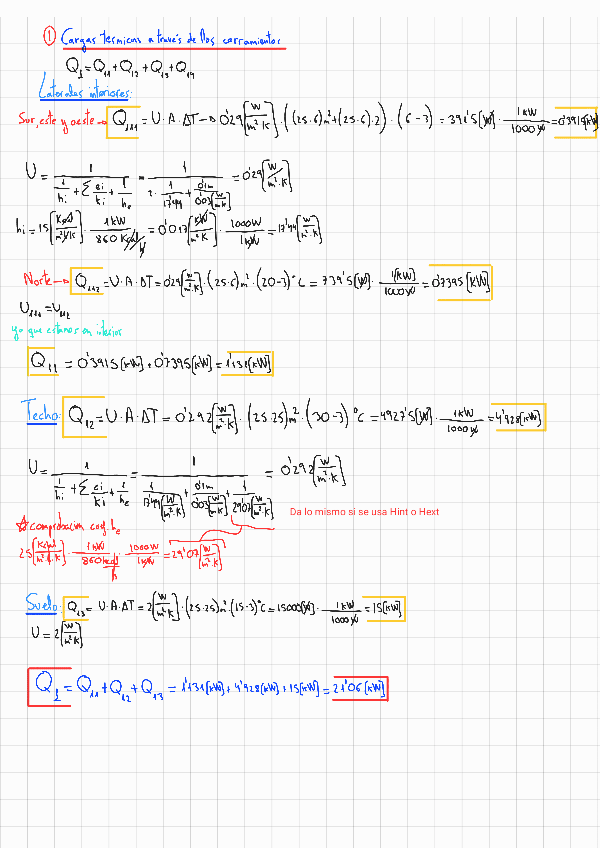 ① Cargas termicas a través de los cerramientos
Q₁ = Q₁₁ + Q₁₂ + Q₁₃ + Q₁₄
Laterales interiores:
Sur, este y oeste → Q₁₁₁ = U · A · ΔT → 0'29 [W/m²·K] · ((25·6) m² + (25·6)·2) · (6-3) = 391'5 [W] · 1kW/1000W = 0'3915 [kW]
U = 1 / (1/hi + Σ ei/ki + 1/he) = 1 / (2 · 1/17'44 + 0'1m/0'03 [W/m·K]) = 0'29 [W/m²·K]
hi = 15 [Kcal/m²·h·K] · 1kW/860 Kcal/h = 0'017 [kW/m²·K] · 1000W/1kW = 17'44 [W/m²·K]
Norte → Q₁₁₂ = U · A · ΔT = 0'29 [W/m²·K] · (25·6) m² · (20-3) °C = 739'5 [W] · 1[kW]/1000W = 0'7395 [kW]
U₁₁₁ = U₁₁₂
ya que estamos en interior
Q₁₁ = 0'3915 [kW] + 0'7395 [kW] = 1'131 [kW]
Techo: Q₁₂ = U · A · ΔT = 0'292 [W/m²·K] · (25·25) m² · (30-3) °C = 4927'5 [W] · 1kW/1000W = 4'928 [kW]
U = 1 / (1/hi + Σ ei/ki + 1/he) = 1 / (1/17'44 [W/m²·K] + 0'1m/0'03 [W/m·K] + 1/29'07 [W/m²·K]) = 0'292 [W/m²·K]
Da lo mismo si se usa Hint o Hext
☆ comprobación coef. he
25 [Kcal/m²·h·K] · 1kW/860 kcal/h · 1000W/1kW = 29'07 [W/m²·K]
Suelo: Q₁₃ = U · A · ΔT = 2 [W/m²·K] · (25·25) m² · (15-3) °C = 15000 [W] · 1kW/1000W = 15 [kW]
U = 2 [W/m²·K]
Q₁ = Q₁₁ + Q₁₂ + Q₁₃ = 1'131 [kW] + 4'928 [kW] + 15 [kW] = 21'06 [kW]